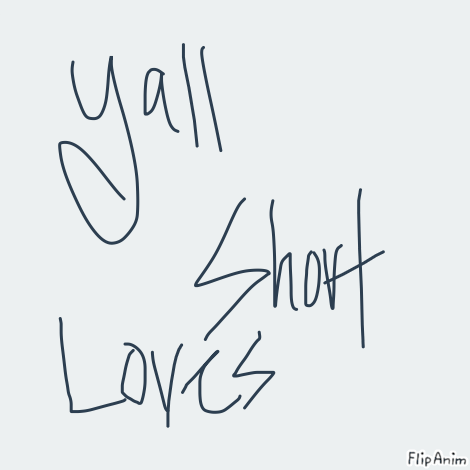 Yall
Short
Loves
FlipAnim